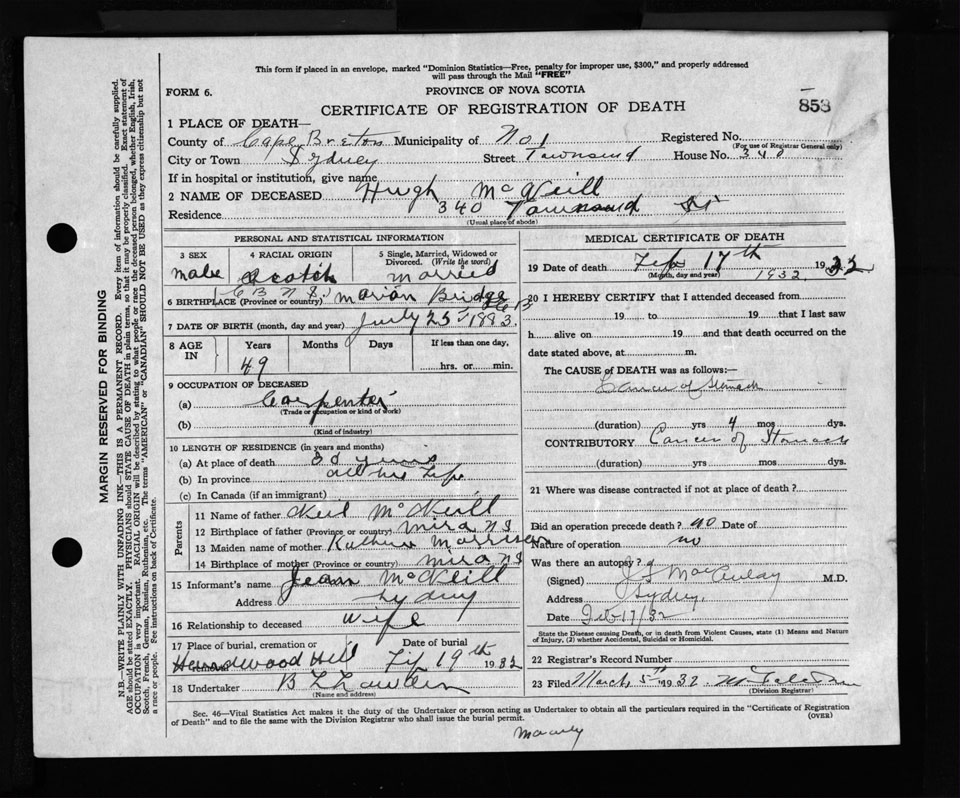 This form if placed in an envelope, marked "Dominion Statistics—Free, penalty for improper use, $300," and properly addressed
will pass through the Mail "FREE"
FORM 6.
PROVINCE OF NOVA SCOTIA
CERTIFICATE OF REGISTRATION OF DEATH
853
1 PLACE OF DEATH—
County of Cape Breton Municipality of No 1 Registered No.
(For use of Registrar General only)
City or Town Sydney Street Townsend House No. 340
If in hospital or institution, give name
2 NAME OF DECEASED Hugh McNeill
Residence 340 Townsend St
(Usual place of abode)
PERSONAL AND STATISTICAL INFORMATION
3 SEX 4 RACIAL ORIGIN 5 Single, Married, Widowed or
Divorced. (Write the word)
male Scotch married
C B N S
6 BIRTHPLACE (Province or country) Marian Bridge
7 DATE OF BIRTH (month, day and year) July 25 1883
8 AGE IN Years Months Days If less than one day,
49 hrs. or min.
9 OCCUPATION OF DECEASED
(a) Carpenter
(Trade or occupation or kind of work)
(b)
(Kind of industry)
10 LENGTH OF RESIDENCE (in years and months)
(a) At place of death 30 years
(b) In province all his Life
(c) In Canada (if an immigrant)
Parents
11 Name of father Neil McNeill
12 Birthplace of father (Province or country) Mira NS
13 Maiden name of mother Katherine Morrison
14 Birthplace of mother (Province or country) Mira NS
15 Informant's name Jean McNeill
Address Sydney
16 Relationship to deceased Wife
17 Place of burial, cremation or Date of burial
removal Hill Feb 19th 1932
18 Undertaker
(Name and address)
MEDICAL CERTIFICATE OF DEATH
19 Date of death Feb 17th 1932 1932
(Month, day and year)
20 I HEREBY CERTIFY that I attended deceased from
19 to 19 that I last saw
h alive on 19 and that death occurred on the
date stated above, at m.
The CAUSE of DEATH was as follows:—
Cancer of Stomach
(duration) yrs 4 mos dys.
CONTRIBUTORY Cancer of Stomach
(duration) yrs mos dys.
21 Where was disease contracted if not at place of death?
Did an operation precede death? no Date of
Nature of operation no
Was there an autopsy?
(Signed) MacAulay M.D.
Address Sydney.
Date Feb 17/32
State the Disease causing Death, or in death from Violent Causes, state (1) Means and Nature
of Injury, (2) whether Accidental, Suicidal or Homicidal.
22 Registrar's Record Number
23 Filed March 5th 1932
(Division Registrar)
Sec. 46—Vital Statistics Act makes it the duty of the Undertaker or person acting as Undertaker to obtain all the particulars required in the "Certificate of Registration
of Death" and to file the same with the Division Registrar who shall issue the burial permit.
(OVER)
MARGIN RESERVED FOR BINDING
N.B.—WRITE PLAINLY WITH UNFADING INK—THIS IS A PERMANENT RECORD. Every item of information should be carefully supplied.
AGE should be stated EXACTLY. PHYSICIANS should STATE CAUSE OF DEATH in plain terms, so that it may be properly classified. Exact statement of
OCCUPATION is very important. RACIAL ORIGIN will be described by stating to what people or race the deceased person belonged, whether English, Irish,
Scotch, French, German, Russian, Ruthenian, etc. The terms "AMERICAN" or "CANADIAN" SHOULD NOT BE USED as they express citizenship but not
a race or people. See instructions on back of Certificate.